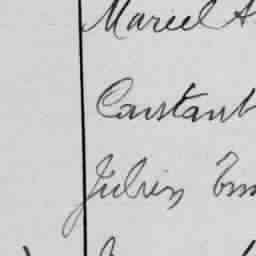 Marcel A
Constant
Julien Em